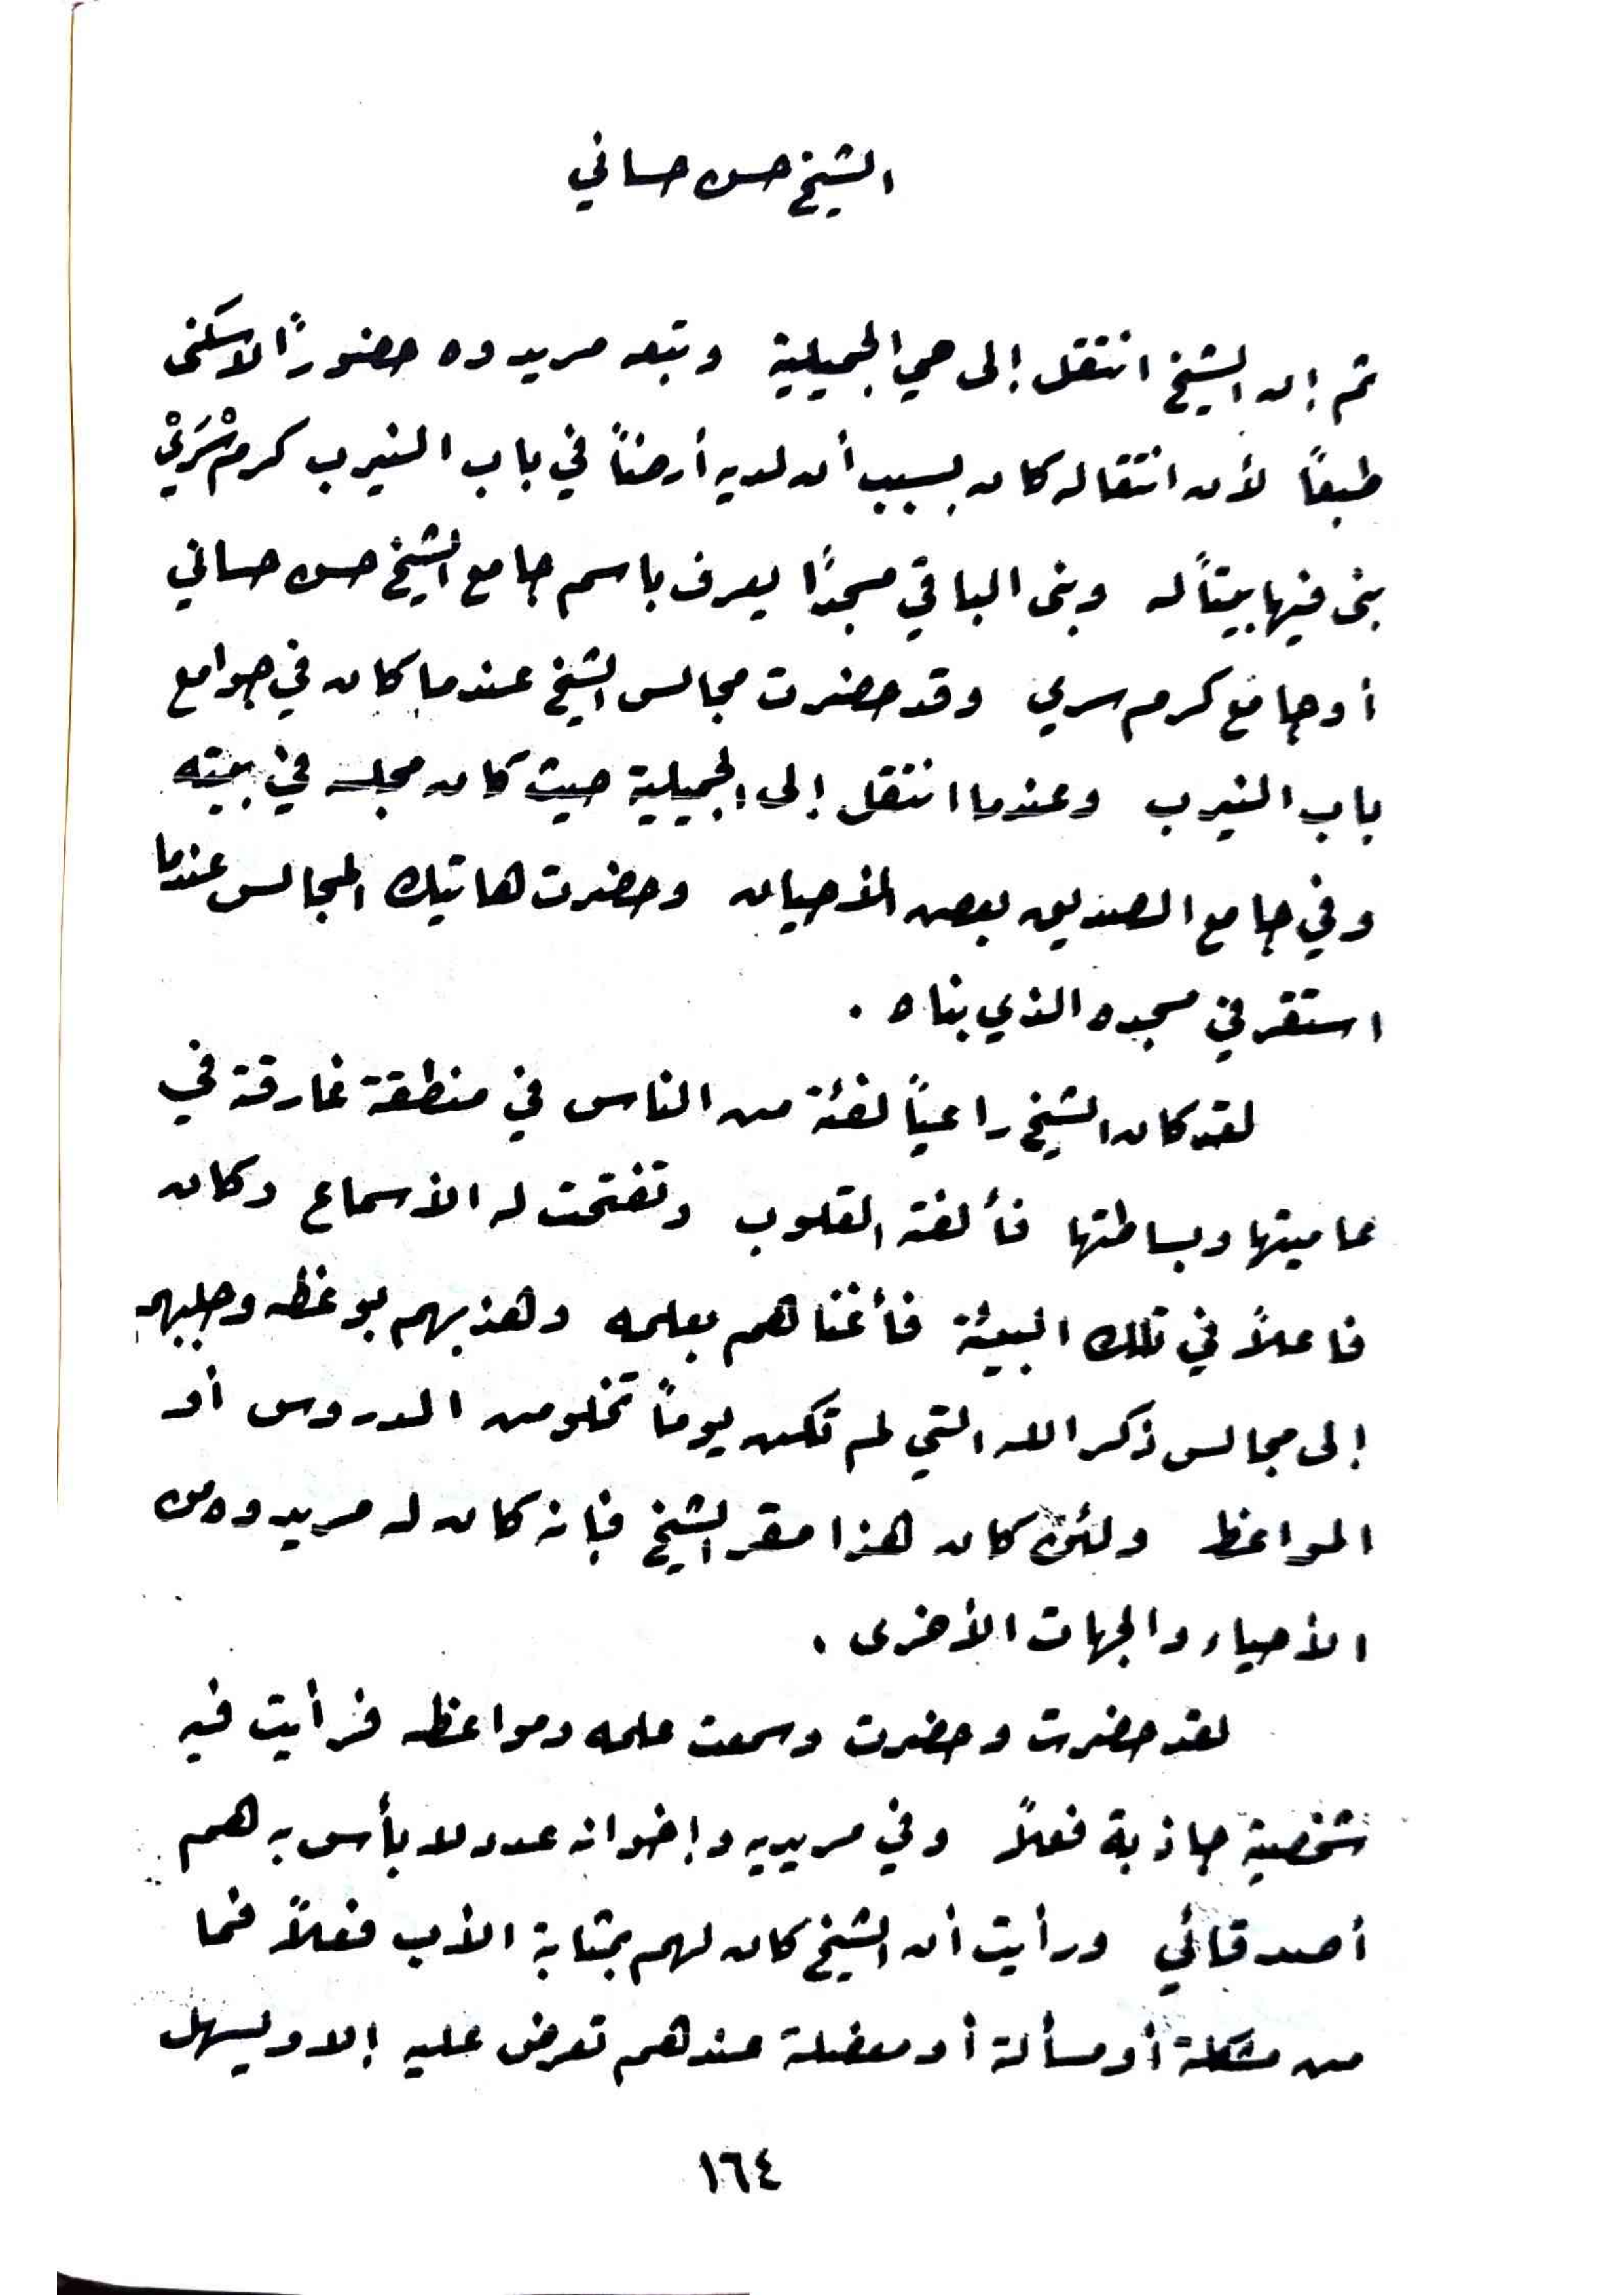 الشيخ حسن حساني
ثم إن الشيخ انتقل إلى حي الجميلية وتبعه مريدوه حضورًا لا سَكنى
طبعاً لأن انتقاله كان بسبب أن لديه أرضاً في باب النيرب كرم سْرَيْ
بنى فيها بيتاً له وبنى الباقي مسجدًا يعرف باسم جامع الشيخ حسن حساني
أو جامع كرم سري وقد حضرت مجالس الشيخ عندما كان في جوامع
باب النيرب وعندما انتقل إلى الجميلية حيث كان مجلسه في بيته
وفي جامع الصديق بعض الأحيان وحضرت هاتيك المجالس عندما
استقر في مسجده الذي بناه .
لقد كان الشيخ راعياً لفئة من الناس في منطقة غارقة في
عاميتها وبساطتها فألفته القلوب وتفتحت له الأسماع وكان
فاعلاً في تلك البيئة فأغناهم بعلمه وهذبهم بوعظه وجلبهم
إلى مجالس ذكر الله التي لم تكن يوماً تخلو من الدروس أو
المواعظ ولئن كان هذا مقر الشيخ فإنه كان له مريدوه من
الأحياء والجهات الأخرى .
لقد حضرت وحضرت وسمعت علمه ومواعظه فرأيت فيه
شخصية جاذبة فعلاً وفي مريديه وإخوانه عدد لا بأس به هم
أصدقائي ورأيت أن الشيخ كان لهم بمثابة الأب فعلاً فما
من مشكلة أو مسألة أو معضلة عندهم تعرض عليه إلا ويسهل
١٦٤